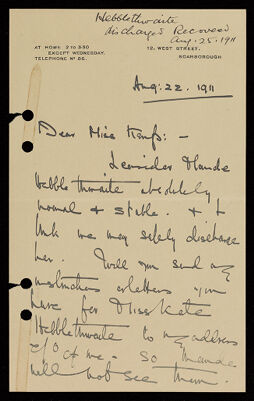 Hebblethwaite
discharged Recovered
Aug. 25. 1911
AT HOME 2 TO 3-30
EXCEPT WEDNESDAY.
TELEPHONE Nº 86.
12, WEST STREET,
SCARBOROUGH
Aug. 22. 1911
Dear Miss :—
I consider Maude
Hebblethwaite absolutely
normal & stable. & I
think we may safely discharge
her. Will you send any
instructions or letters you
have for Miss Kate
Hebblethwaite to my address
c/o of me - so Maude
will not see them.